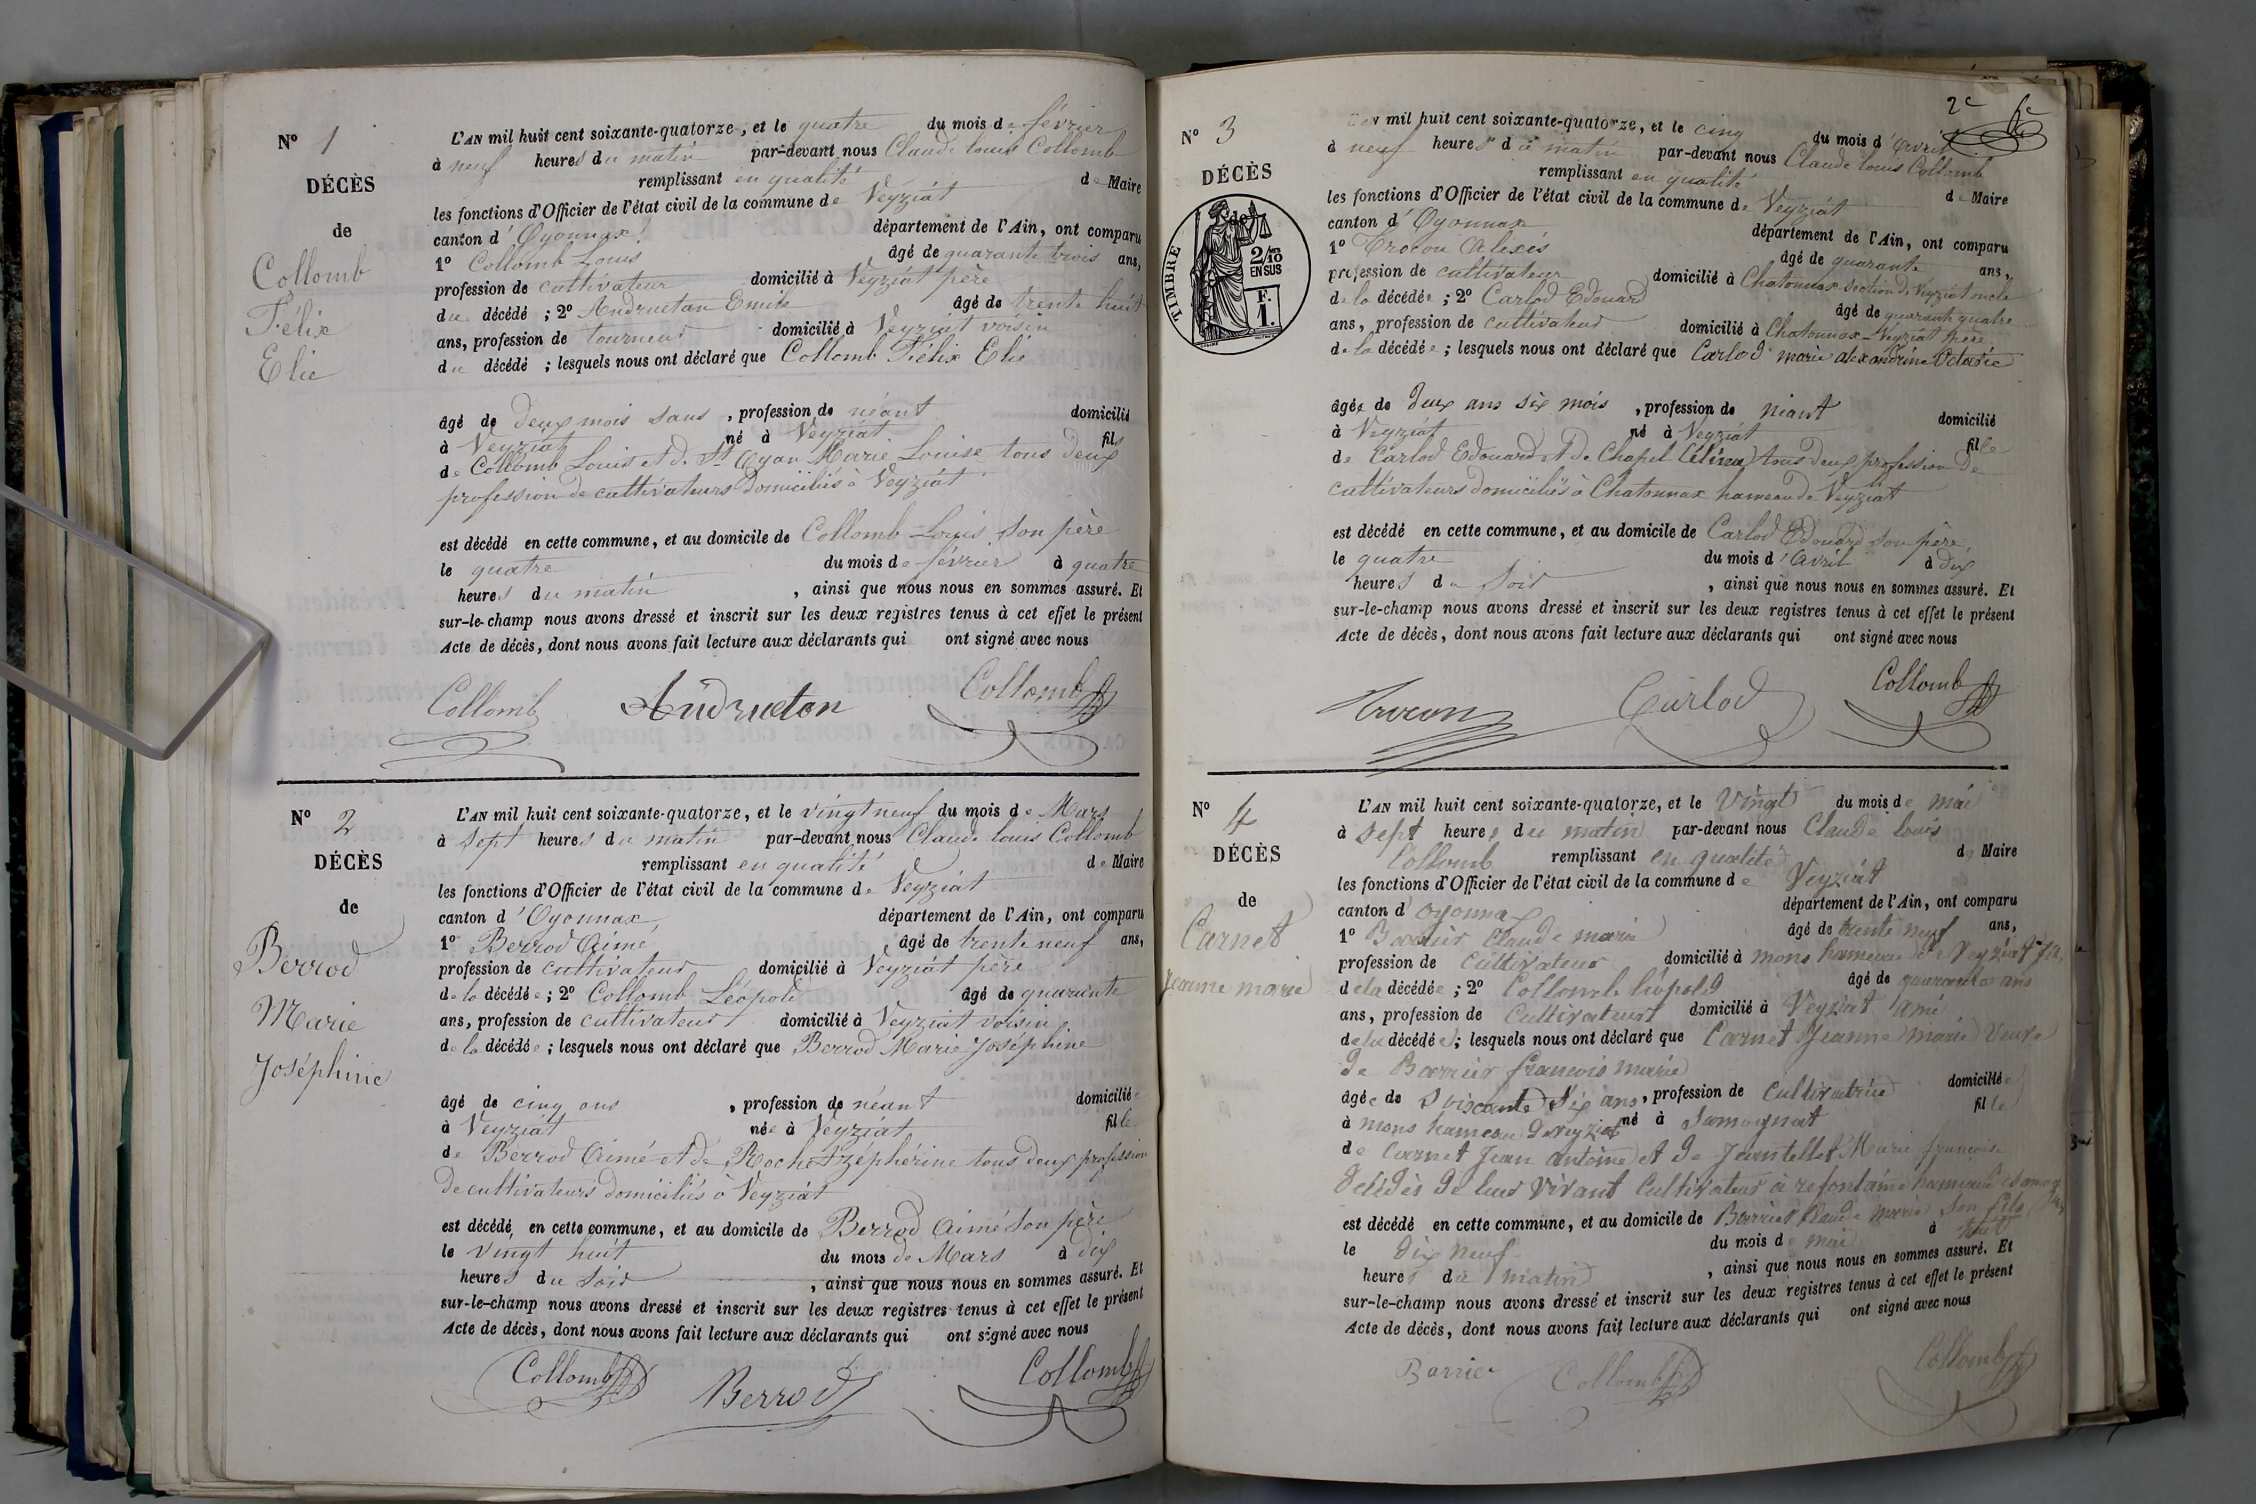 N° 1
L'AN mil huit cent soixante-quatorze, et le quatre du mois de février
à neuf heures du matin par-devant nous Claude Louis Collomb
remplissant en qualité de Maire
DÉCÈS
les fonctions d'Officier de l'état civil de la commune de Veyziat
de
canton d'Oyonnax département de l'Ain, ont comparu
1° Collomb Louis âgé de quarante trois ans,
Collomb
Félix
Elie
profession de cultivateur domicilié à Veyziat père
du décédé ; 2° Andruetan Emile âgé de trente huit
ans, profession de tourneur domicilié à Veyziat voisin
du décédé ; lesquels nous ont déclaré que Collomb Félix Elie
âgé de deux mois sans , profession de néant domicilié
à Veyziat né à Veyziat fils
de Collomb Louis et de St Oyan Marie Louise tous deux
profession de cultivateurs domiciliés à Veyziat
est décédé en cette commune, et au domicile de Collomb Louis son père
le quatre du mois de février à quatre
heures du matin , ainsi que nous nous en sommes assuré. Et
sur-le-champ nous avons dressé et inscrit sur les deux registres tenus à cet effet le présent
Acte de décès, dont nous avons fait lecture aux déclarants qui ont signé avec nous
Collomb Andrueton Collomb
N° 2
L'AN mil huit cent soixante-quatorze, et le vingt neuf du mois de Mars
à sept heures du matin par-devant nous Claude Louis Collomb
DÉCÈS
remplissant en qualité de Maire
les fonctions d'Officier de l'état civil de la commune de Veyziat
de
canton d'Oyonnax département de l'Ain, ont comparu
Berrod
Marie
Joséphine
1° Berrod Aimé , âgé de trente neuf ans,
profession de cultivateur domicilié à Veyziat père
de la décédée ; 2° Collomb Léopold âgé de quarante
ans, profession de cultivateur domicilié à Veyziat voisin
de la décédée ; lesquels nous ont déclaré que Berrod Marie Joséphine
âgé de cinq ans , profession de néant domiciliée
à Veyziat née à Veyziat fille
de Berrod Aimé et de Rochet zéphérine tous deux profession
de cultivateurs domiciliés à Veyziat
est décédé en cette commune, et au domicile de Berrod Aimé son père
le vingt huit du mois de Mars à dix
heures du soir , ainsi que nous nous en sommes assuré. Et
sur-le-champ nous avons dressé et inscrit sur les deux registres tenus à cet effet le présent
Acte de décès, dont nous avons fait lecture aux déclarants qui ont signé avec nous
Collomb Berrod Collomb
2e
N° 3
mil huit cent soixante-quatorze, et le cinq du mois d'Avril
à neuf heures du matin par-devant nous Claude Louis Collomb
DÉCÈS
remplissant en qualité de Maire
de
TIMBRE
2/10
EN SUS
F.
1.
les fonctions d'Officier de l'état civil de la commune de Veyziat
canton d'Oyonnax département de l'Ain, ont comparu
1° Trocon Alexis âgé de quarante ans,
profession de cultivateur domicilié à Chatonnax section de Veyziat oncle
de la décédée ; 2° Carlod Edouard âgé de quarante quatre
ans, profession de cultivateur domicilié à Chatonnax-Veyziat père
de la décédée ; lesquels nous ont déclaré que Carlod marie alexandrine Octavie
âgée de deux ans six mois , profession de néant domicilié
à Veyziat né à Veyziat fille
de Carlod Edouard et de Chapel Célina tous deux profession de
cultivateurs domiciliés à Chatonnax hameau de Veyziat
est décédé en cette commune, et au domicile de Carlod Edouard son père
le quatre du mois d'Avril à dix
heures du soir , ainsi que nous nous en sommes assuré. Et
sur-le-champ nous avons dressé et inscrit sur les deux registres tenus à cet effet le présent
Acte de décès, dont nous avons fait lecture aux déclarants qui ont signé avec nous
Trocon Carlod Collomb
N° 4
L'AN mil huit cent soixante-quatorze, et le Vingt du mois de mai
à sept heures du matin par-devant nous Claude Louis
DÉCÈS
Collomb remplissant en qualité de Maire
les fonctions d'Officier de l'état civil de la commune de Veyziat
de
canton d'oyonnax département de l'Ain, ont comparu
Carnet
Jeanne marie
1° Barrier Claude marie âgé de trente neuf ans,
profession de cultivateur domicilié à mons hameau de Veyziat
de la décédée ; 2° Collomb léopold âgé de quarante ans
ans, profession de Cultivateur domicilié à Veyziat ami
de la décédée ; lesquels nous ont déclaré que Carnet Jeanne marie Veuve
de Barrier françois marie
âgée de soixante six ans, profession de Cultivatrice domiciliée
à mons hameau de veyziat né à Samognat fille
de Carnet Jean antoine et de Jeantellet Marie françoise
décédés de leur vivant Cultivateur à refontaine hameau
est décédé en cette commune, et au domicile de Barrier Claude marie son fils
le dix neuf du mois de mai à huit
heures du matin , ainsi que nous nous en sommes assuré. Et
sur-le-champ nous avons dressé et inscrit sur les deux registres tenus à cet effet le présent
Acte de décès, dont nous avons fait lecture aux déclarants qui ont signé avec nous
Barrier Collomb Collomb